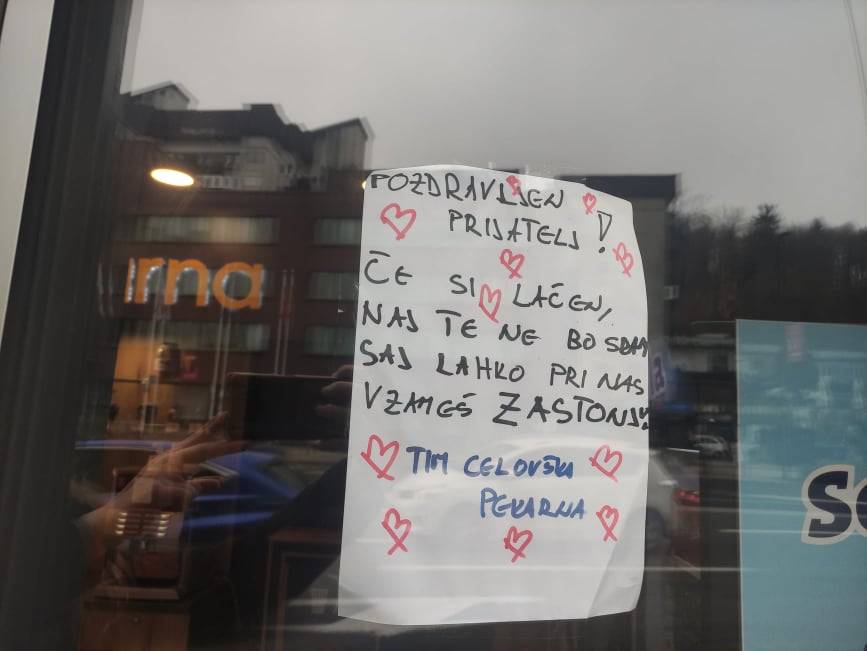 POZDRAVLJEN
PRIJATELJ!
ČE SI LAČEN,
NAJ TE NE BO SRAM
SAJ LAHKO PRI NAS
VZAMEŠ ZASTONJ!
TIM CELOVŠKA
PEKARNA
rna